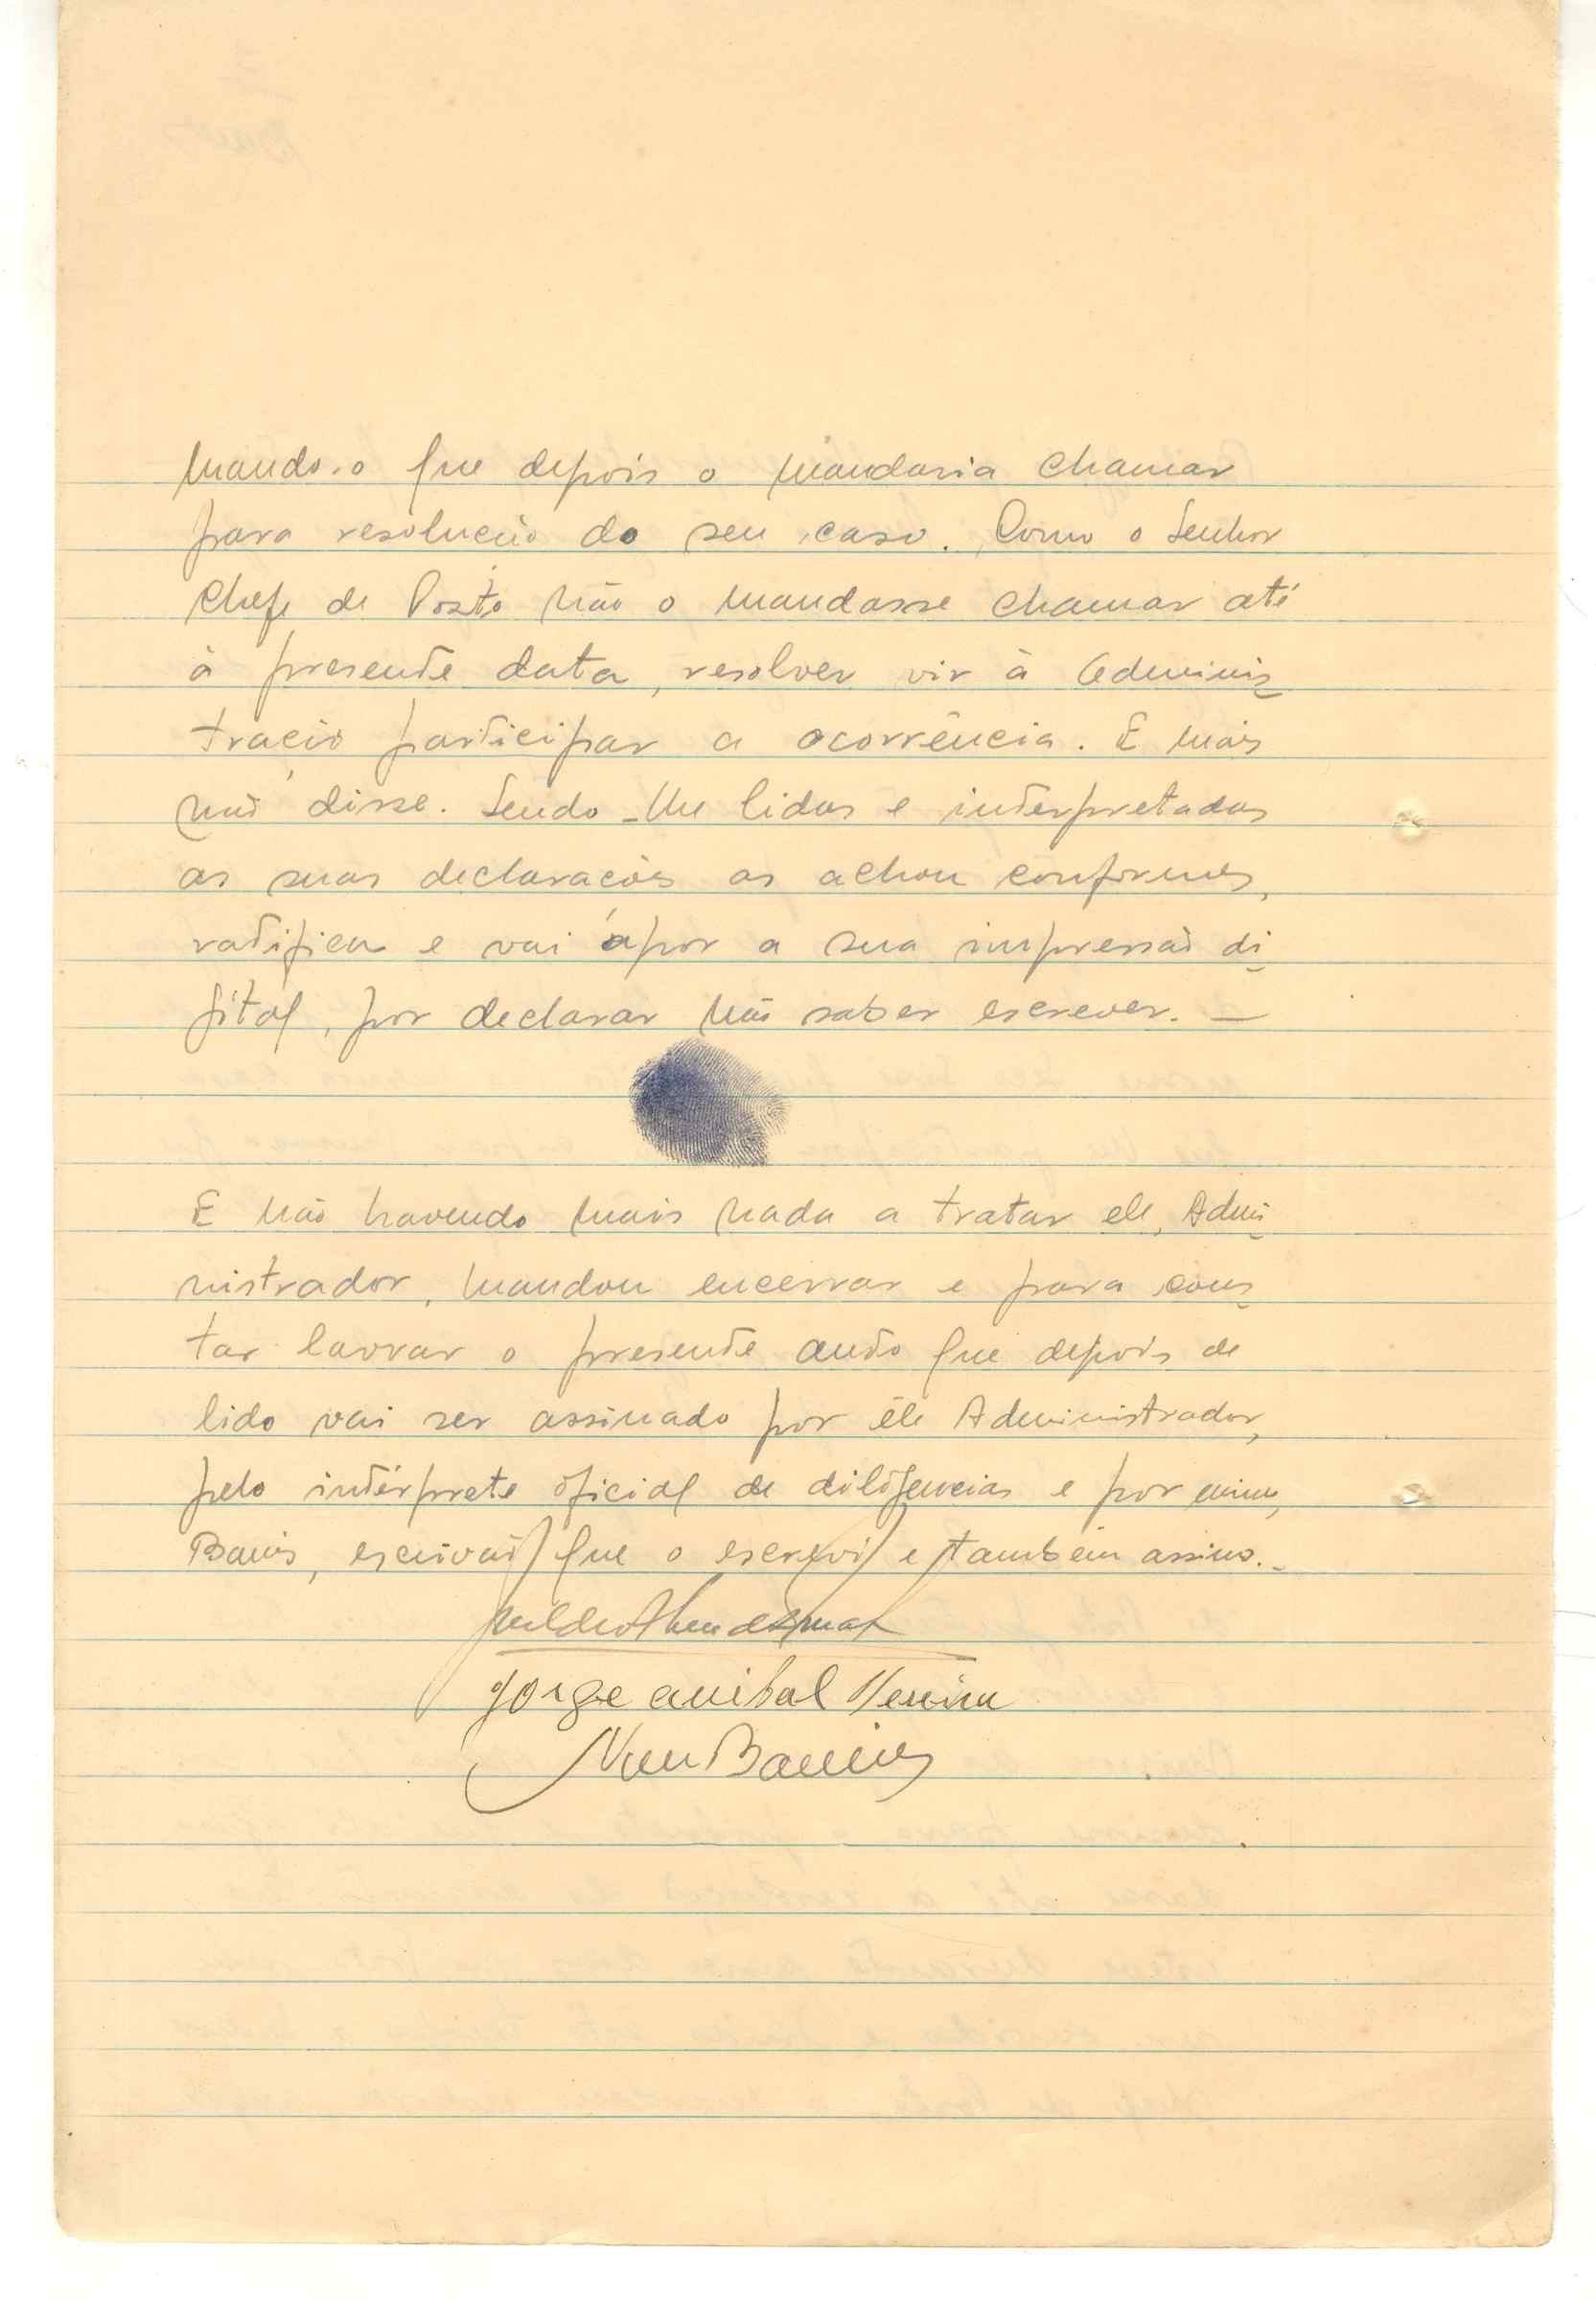 mando-o que depois o mandaria chamar
para resolução do seu caso. Como o Senhor
Chefe de Posto não o mandasse chamar até
à presente data, resolveu vir à Adminis-
tração participar a ocorrência. E mais
não disse. Sendo-lhe lidas e interpretadas
as suas declarações as achou conformes,
ratifica e vai apor a sua impressão di-
gital, por declarar não saber escrever. —
E não havendo mais nada a tratar ele, Admi-
nistrador, mandou encerrar e para cons-
tar lavrar o presente auto que depois de
lido vai ser assinado por êle Administrador,
pelo intérprete oficial de diligencias e por mim,
escrivão que o escrevi e também assino.-
Jorge anibal